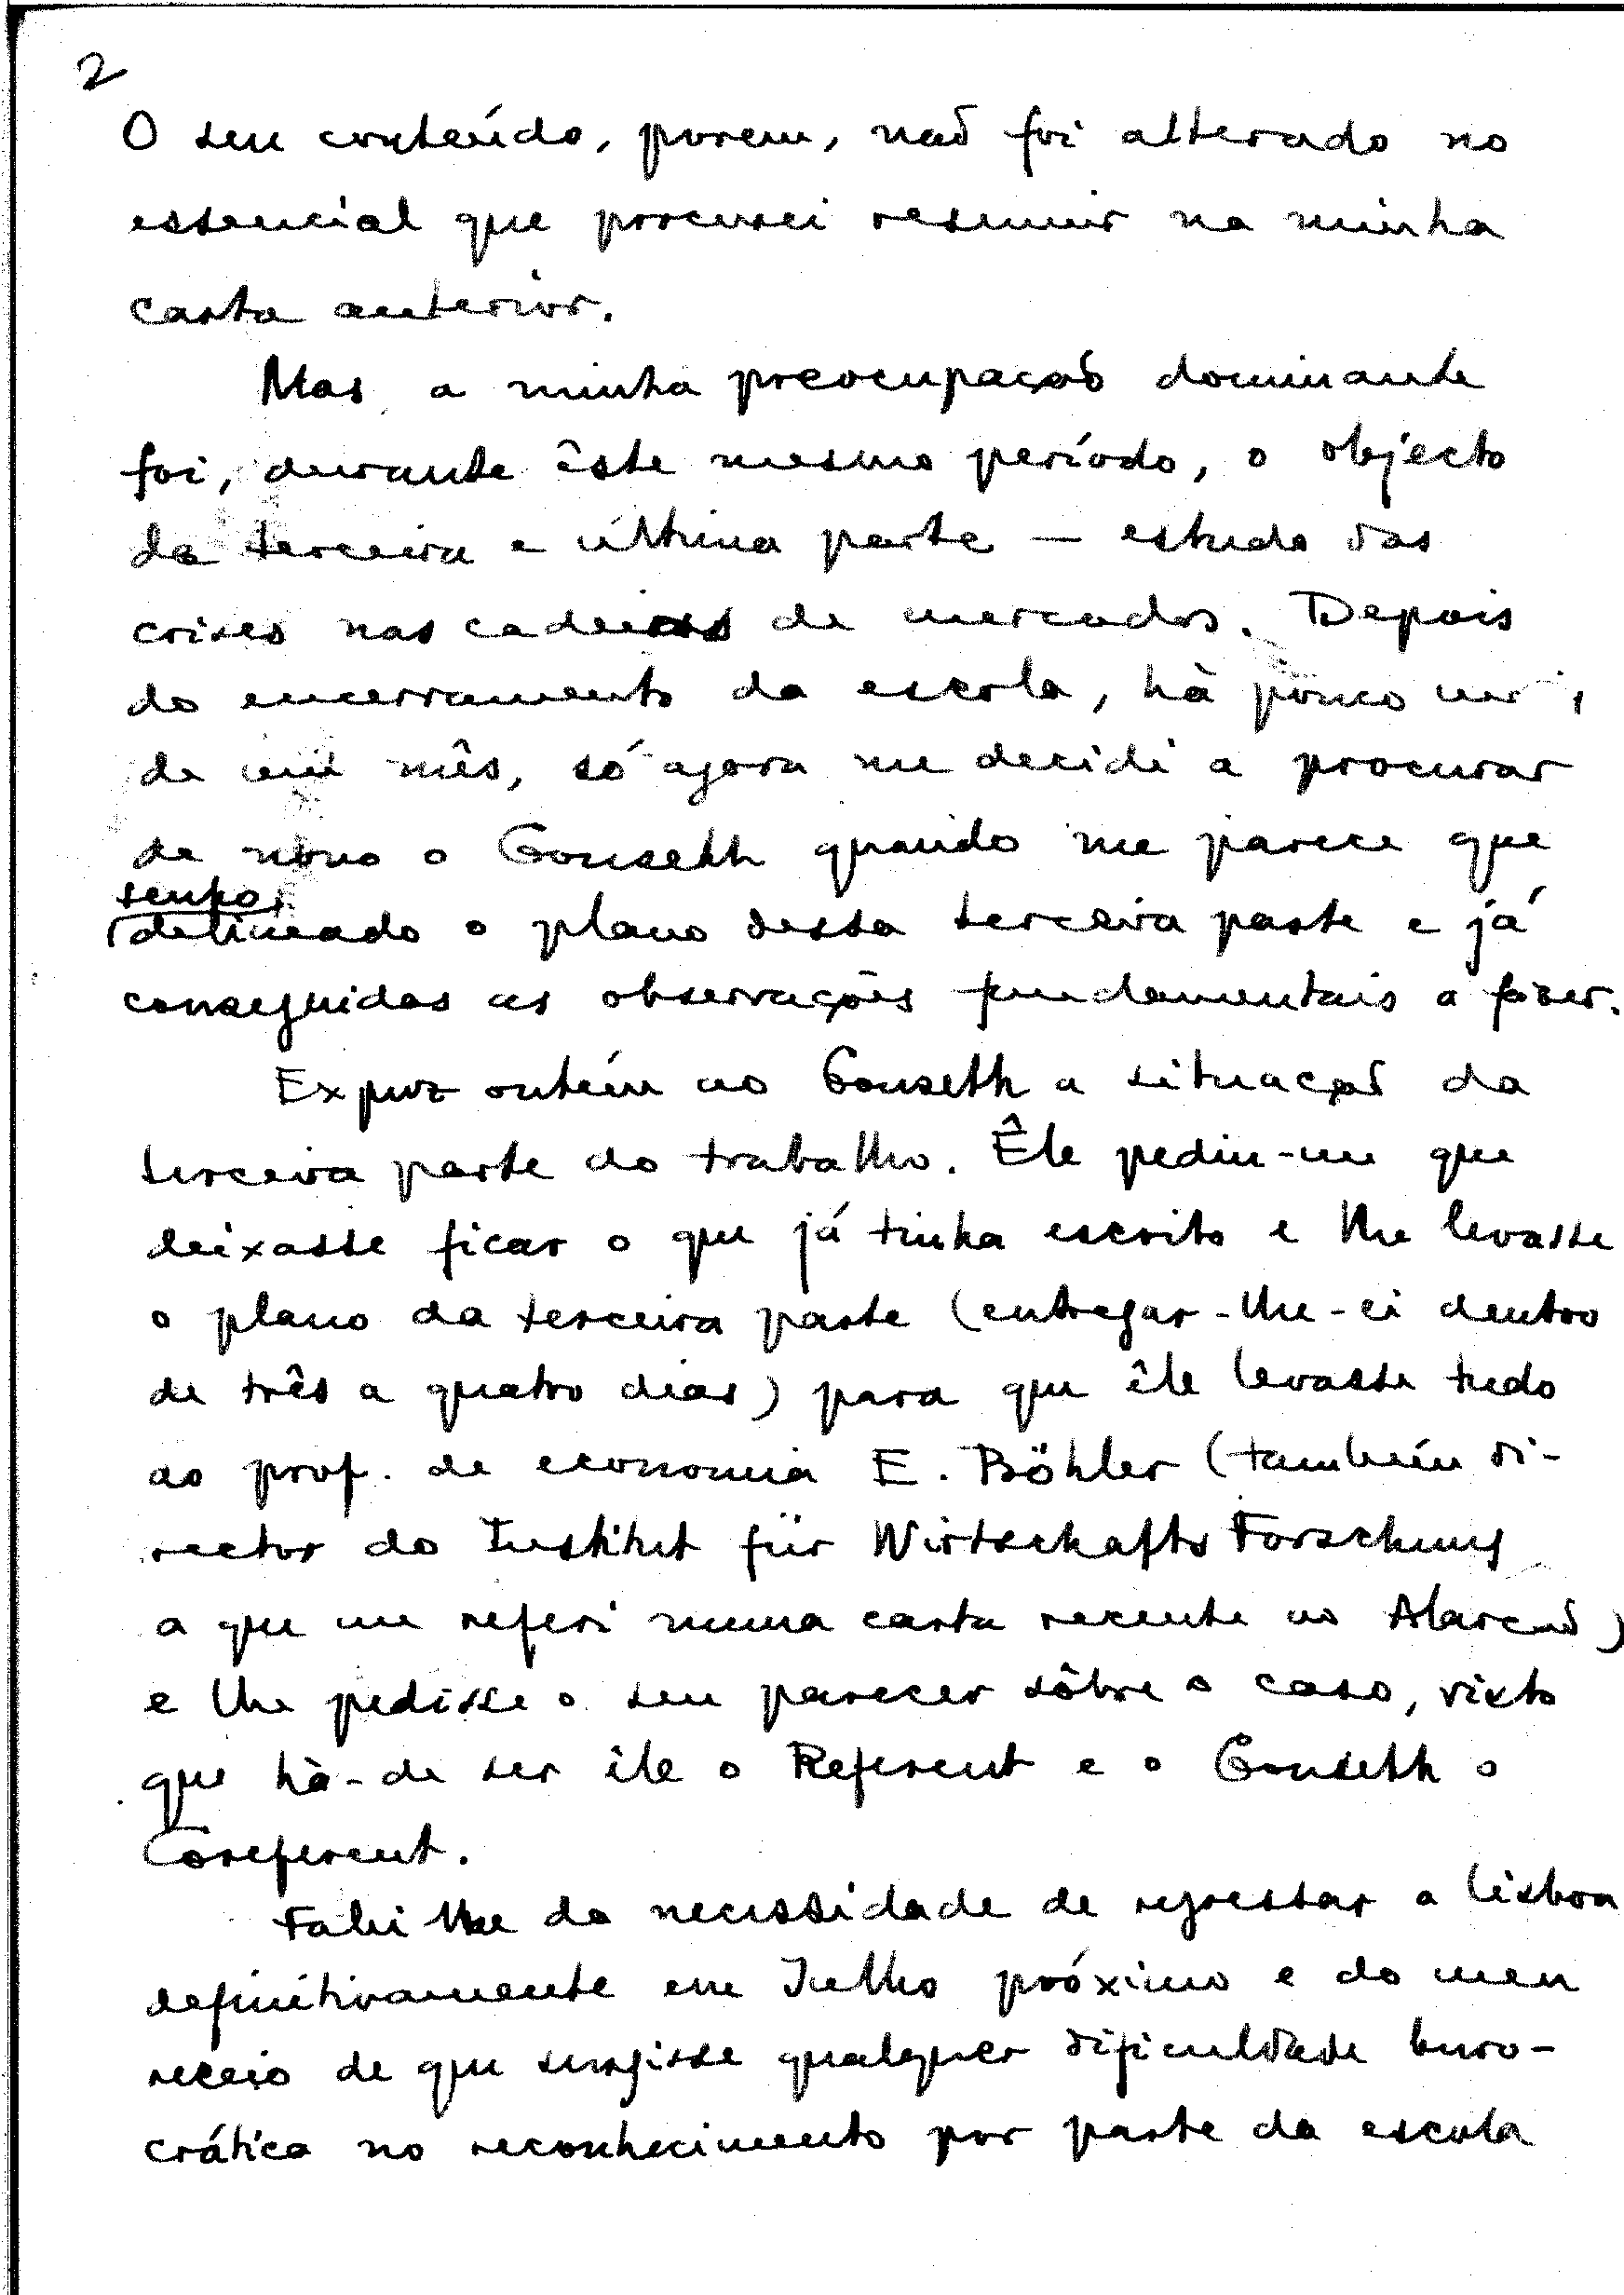 2
O seu conteúdo, porem, não foi alterado no
essencial que procurei resumir na minha
carta anterior.
Mas a minha preocupação dominante
foi, durante êste mesmo período, o objecto
da terceira e última parte — estudo das
crises nas cadeias de mercados. Depois
do encerramento da escola, hà pouco
de um mês, só agora me decidi a procurar
de novo o Gonseth quando me parece que
tenho
delineado o plano dessa terceira parte e já
conseguidas as observações fundamentais a fazer.
Expuz ontém ao Gonseth a situação da
terceira parte do trabalho. Êle pediu-me que
deixasse ficar o que já tinha escrito e lhe levasse
o plano da terceira parte (entregar-lhe-ei dentro
de três a quatro dias) para que êle levasse tudo
ao prof. de economia E. Böhler (também di-
rector do Institut für Wirtschafts Forschung
a que me referi numa carta recente ao Alarcão)
e lhe pedisse o seu parecer sôbre o caso, visto
que hà-de ser êle o Referent e o Gonseth o
Coreferent.
Falei lhe da necessidade de regressar a Lisboa
definitivamente em Julho próximo e do meu
receio de que surgisse qualquer dificuldade buro-
crática no reconhecimento por parte da escola